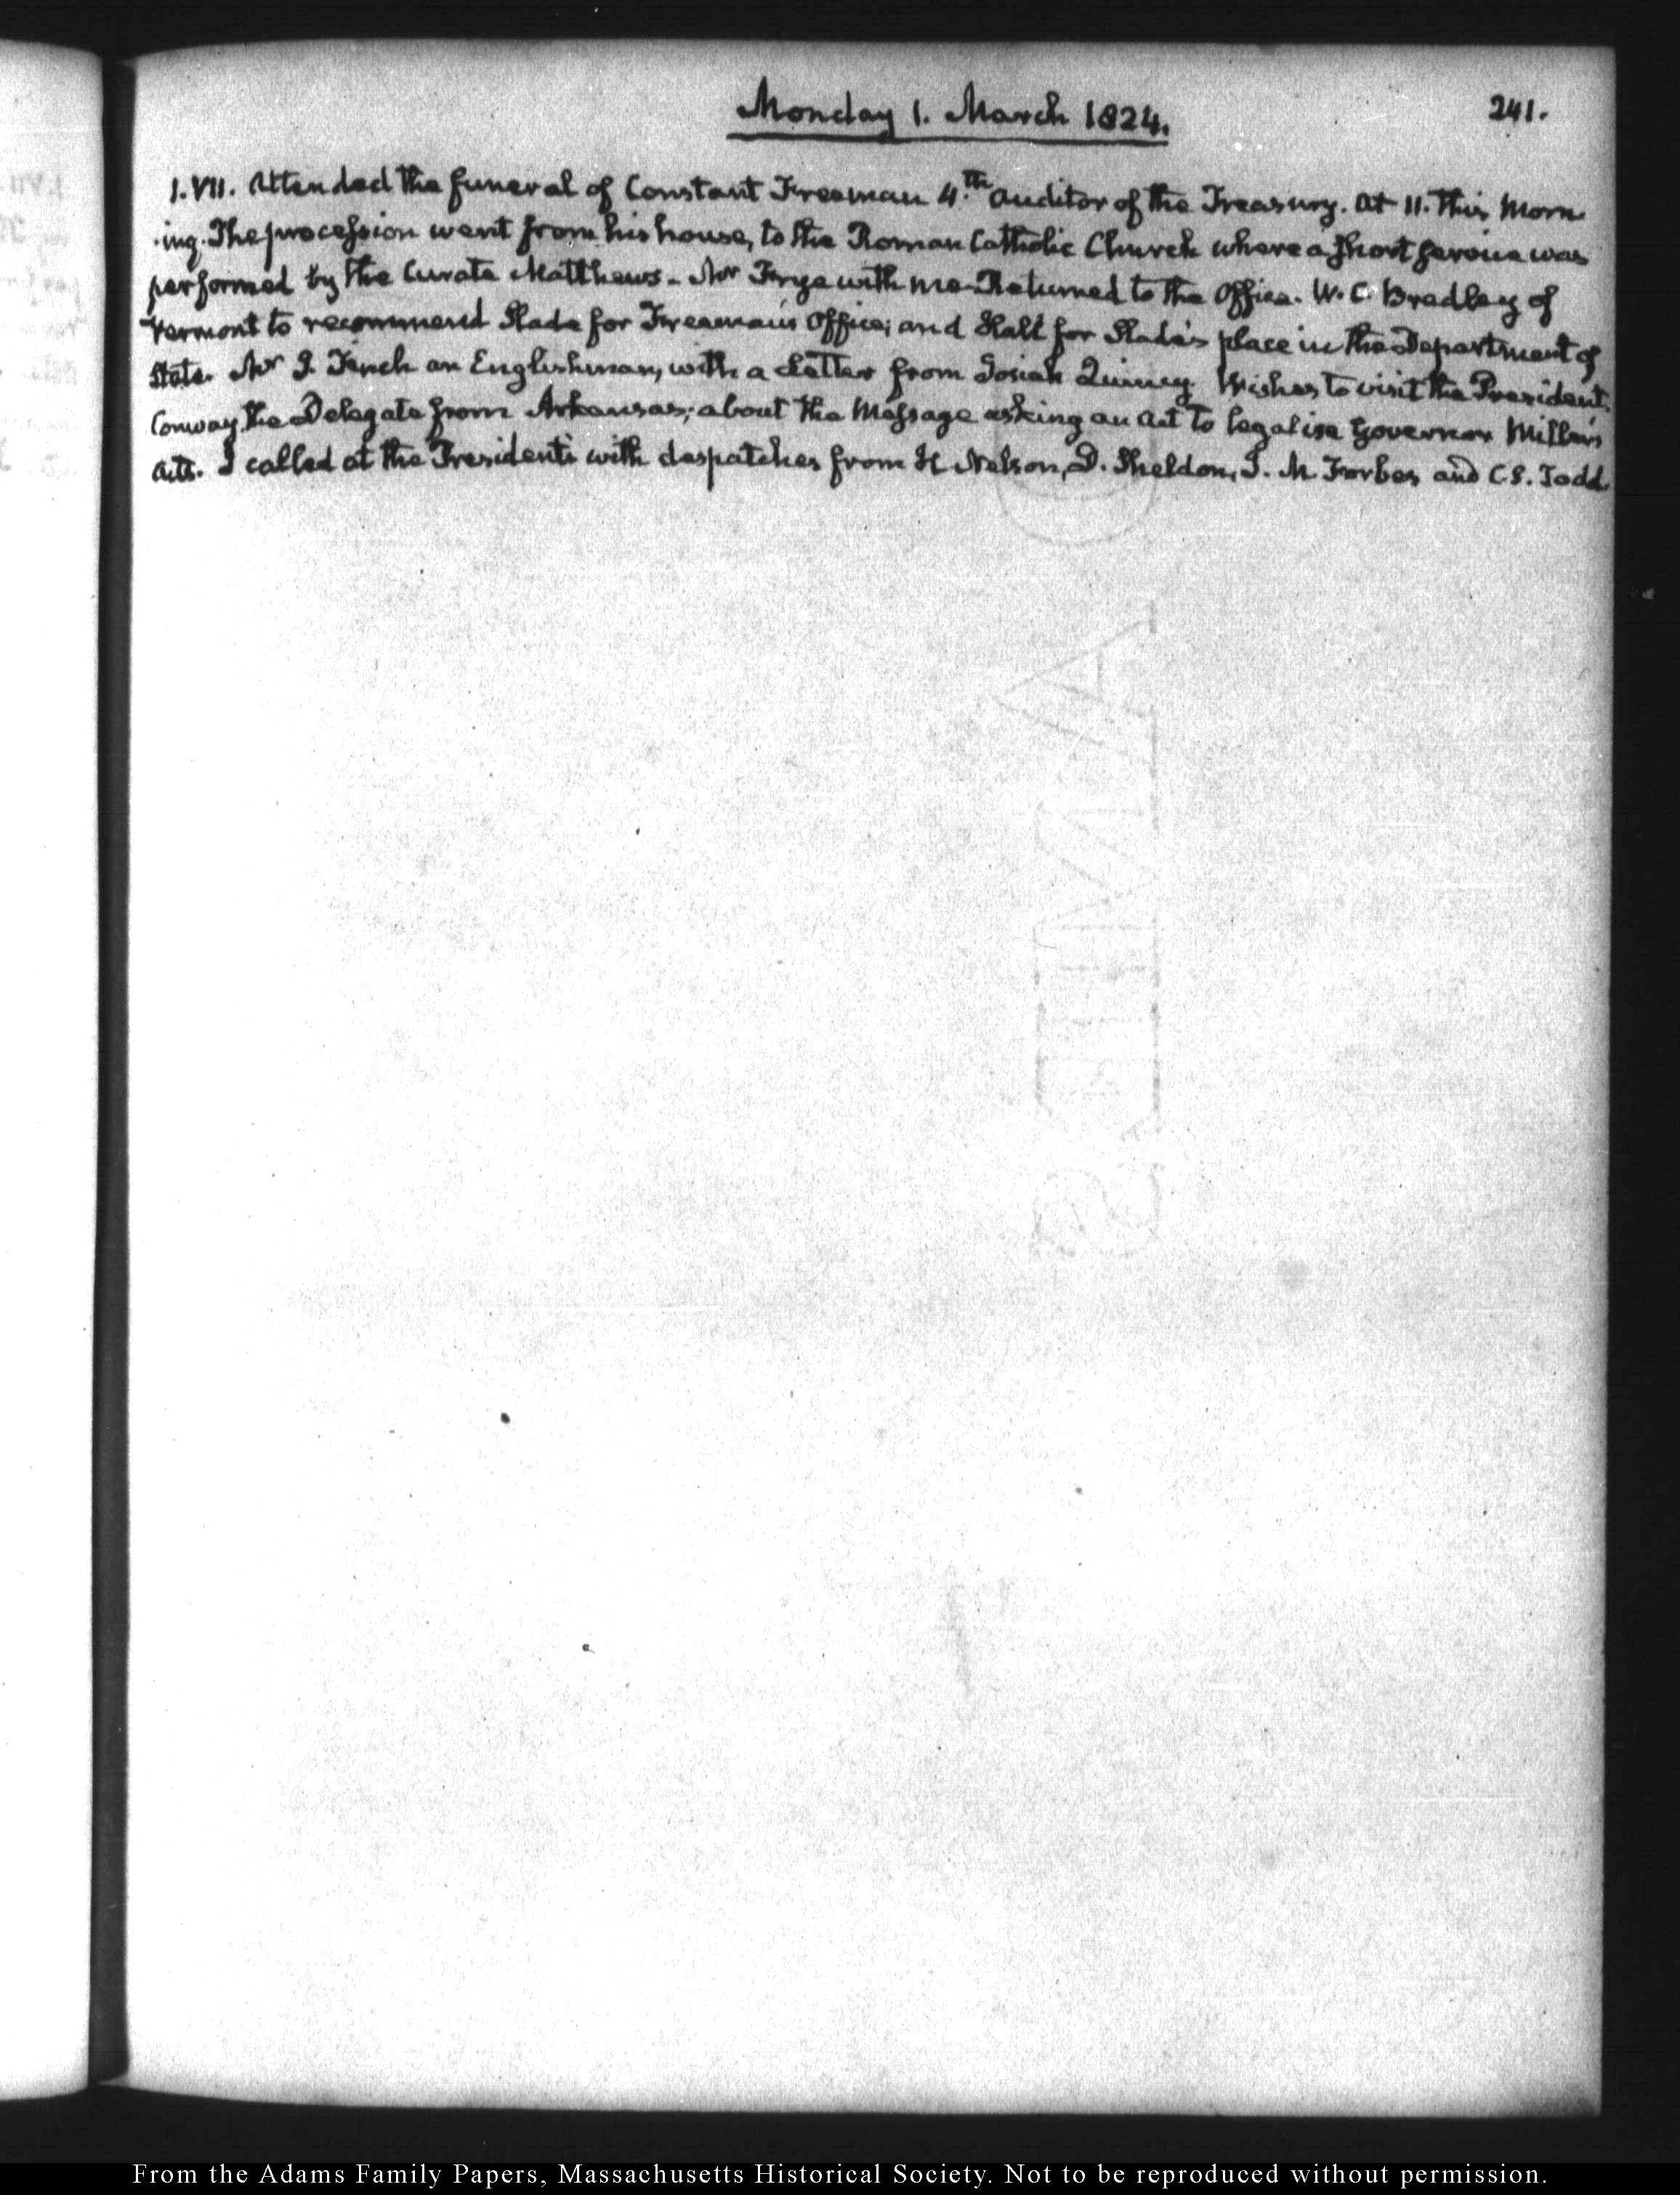 Monday 1. March 1824.
241.
1. VII. Attended the funeral of Constant Freeman 4.th Auditor of the Treasury. At 11. This Morn-
-ing. The procession went from his house, to the Roman Catholic Church where a short service was
performed by the Curate Matthews - Mr Frye with me - Returned to the Office. W. C. Bradley of
Vermont to recommend Slade for Freeman's Office; and Hall for Slade's place in the Department of
State. Mr I. Finch an Englishman, with a Letter from Josiah Quincy. Wishes to visit the President.
Conway, the Delegate from Arkansas; about the Message asking an Act to legalise Governor Miller's
Acts. I called at the President's with despatches from H Nelson, D. Sheldon, J. M. Forbes and C. S. Todd
From the Adams Family Papers, Massachusetts Historical Society. Not to be reproduced without permission.